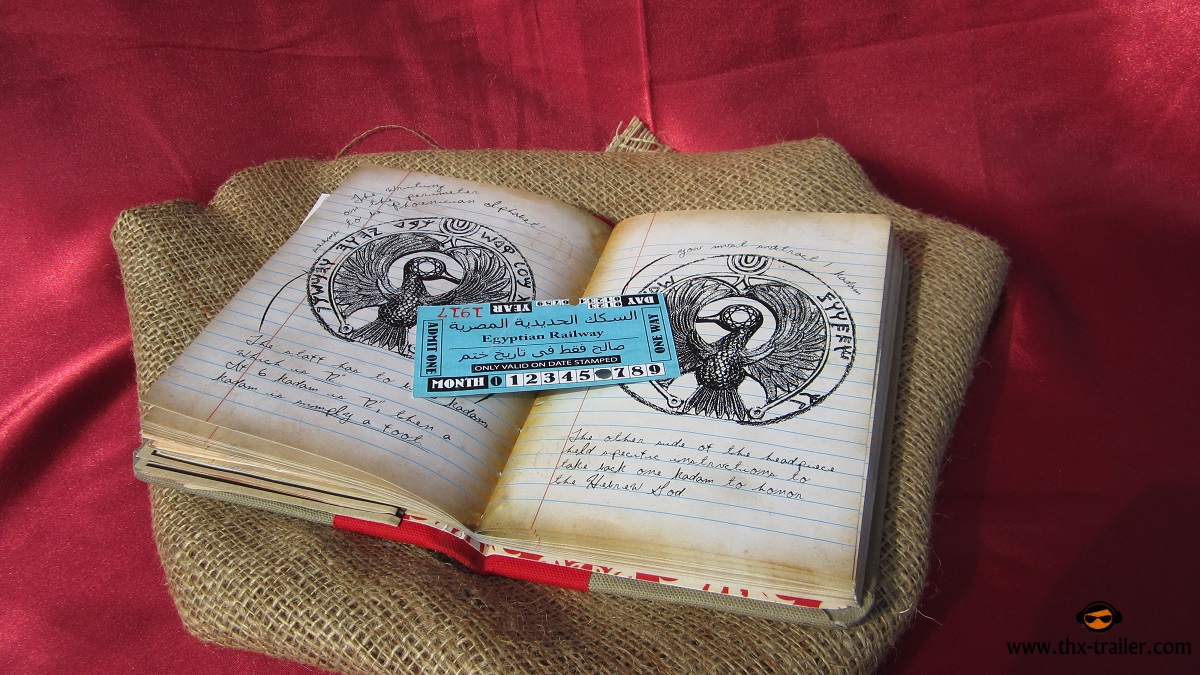 The writing
on the perimeter
seems to be Phoenician alphabet
The staff has to be kadam,
Which is "R"
At 6 kadam is "R", then a
kadam is simply a foot.
1917
YEAR
DAY
السكك الحديدية المصرية
Egyptian Railway
صالح فقط في تاريخ ختم
ONLY VALID ON DATE STAMPED
ADMIT ONE
ONE WAY
MONTH 0 1 2 3 4 5 7 8 9
you must subtract 1 kadam
The other side of the headpiece
held specific instructions to
take back one kadam to honor
the Hebrew God
www.thx-trailer.com